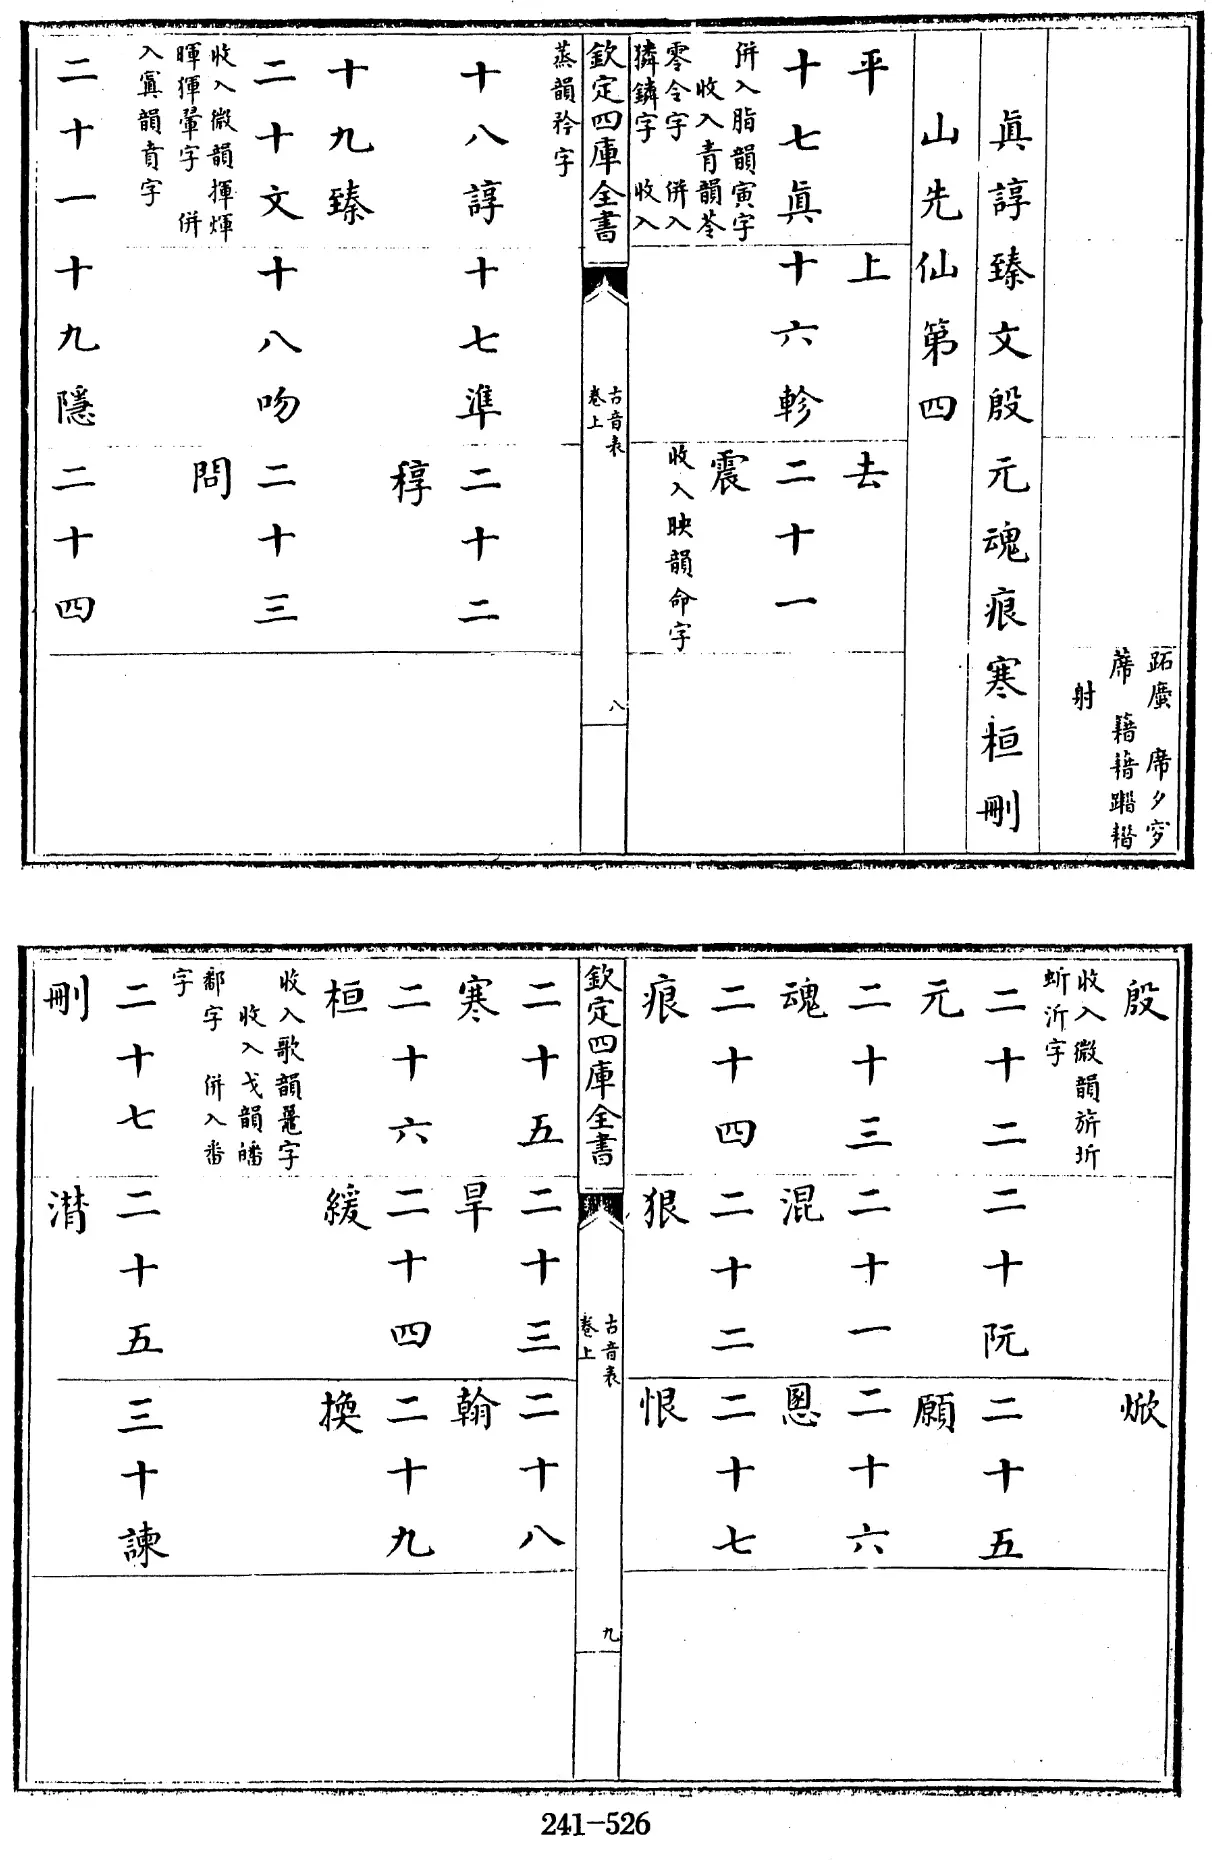 跖㢑 席夕穸
蓆 籍耤踖䄍
射
眞諄臻文殷元魂痕寒桓刪
山先仙第四
平 上 去
十七眞 十六軫 二十一
震
併入脂韻寅字
收入青韻苓
零令字 併入
獜鏻字 收入
收入映韻命字
欽定四庫全書
古音表
卷上
八
蒸韻矜字
十八諄 十七準 二十二
稕
十九臻
二十文 十八吻 二十三
問
收入微韻揮煇
暉㣓翬字 併
入寘韻賁字
二十一 十九隱 二十四
殷 焮
收入微韻旂圻
蚚沂字
二十二 二十阮 二十五
元 願
二十三 二十一 二十六
魂 混 慁
二十四 二十二 二十七
痕 狠 恨
欽定四庫全書
古音表
卷上
九
二十五 二十三 二十八
寒 旱 翰
二十六 二十四 二十九
桓 緩 換
收入歌韻鼉字
收入戈韻皤
鄱字 併入番
字
二十七 二十五 三十諫
刪 潸
241-526